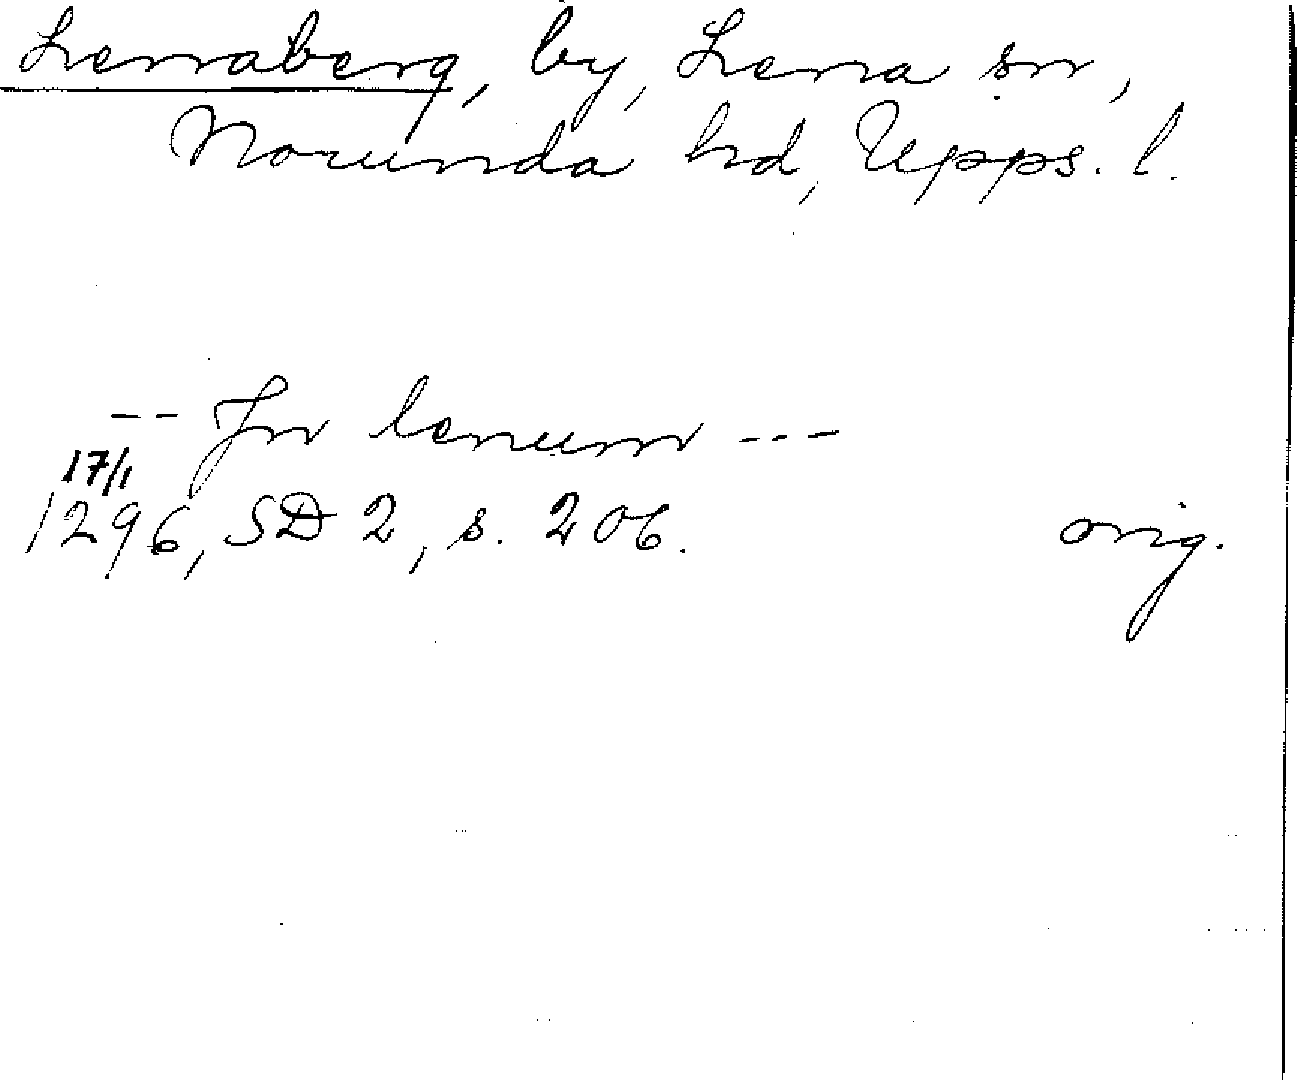 Lenaberg, by, Lena sn,
Norunda hd, Upps. l.
-- Jn lenum ---
17/1
1296, SD 2, s. 206. orig.